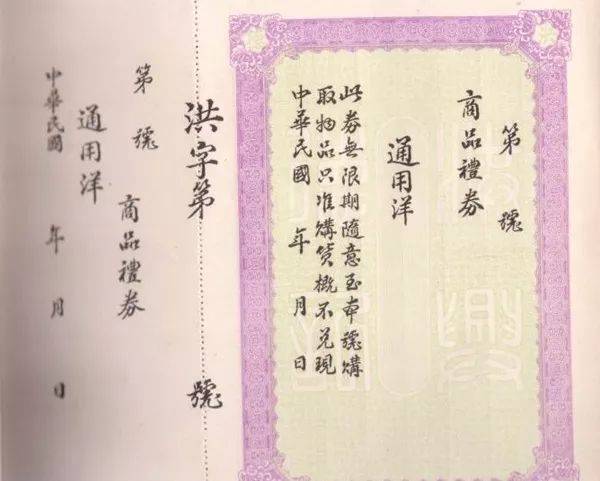 第 號
商品禮券
通用洋
此券無限期隨意至本號購
取物品只准購貨概不兌現
中華民國 年 月 日
洪字第 號
商品禮券
第 號
通用洋
中華民國 年 月 日